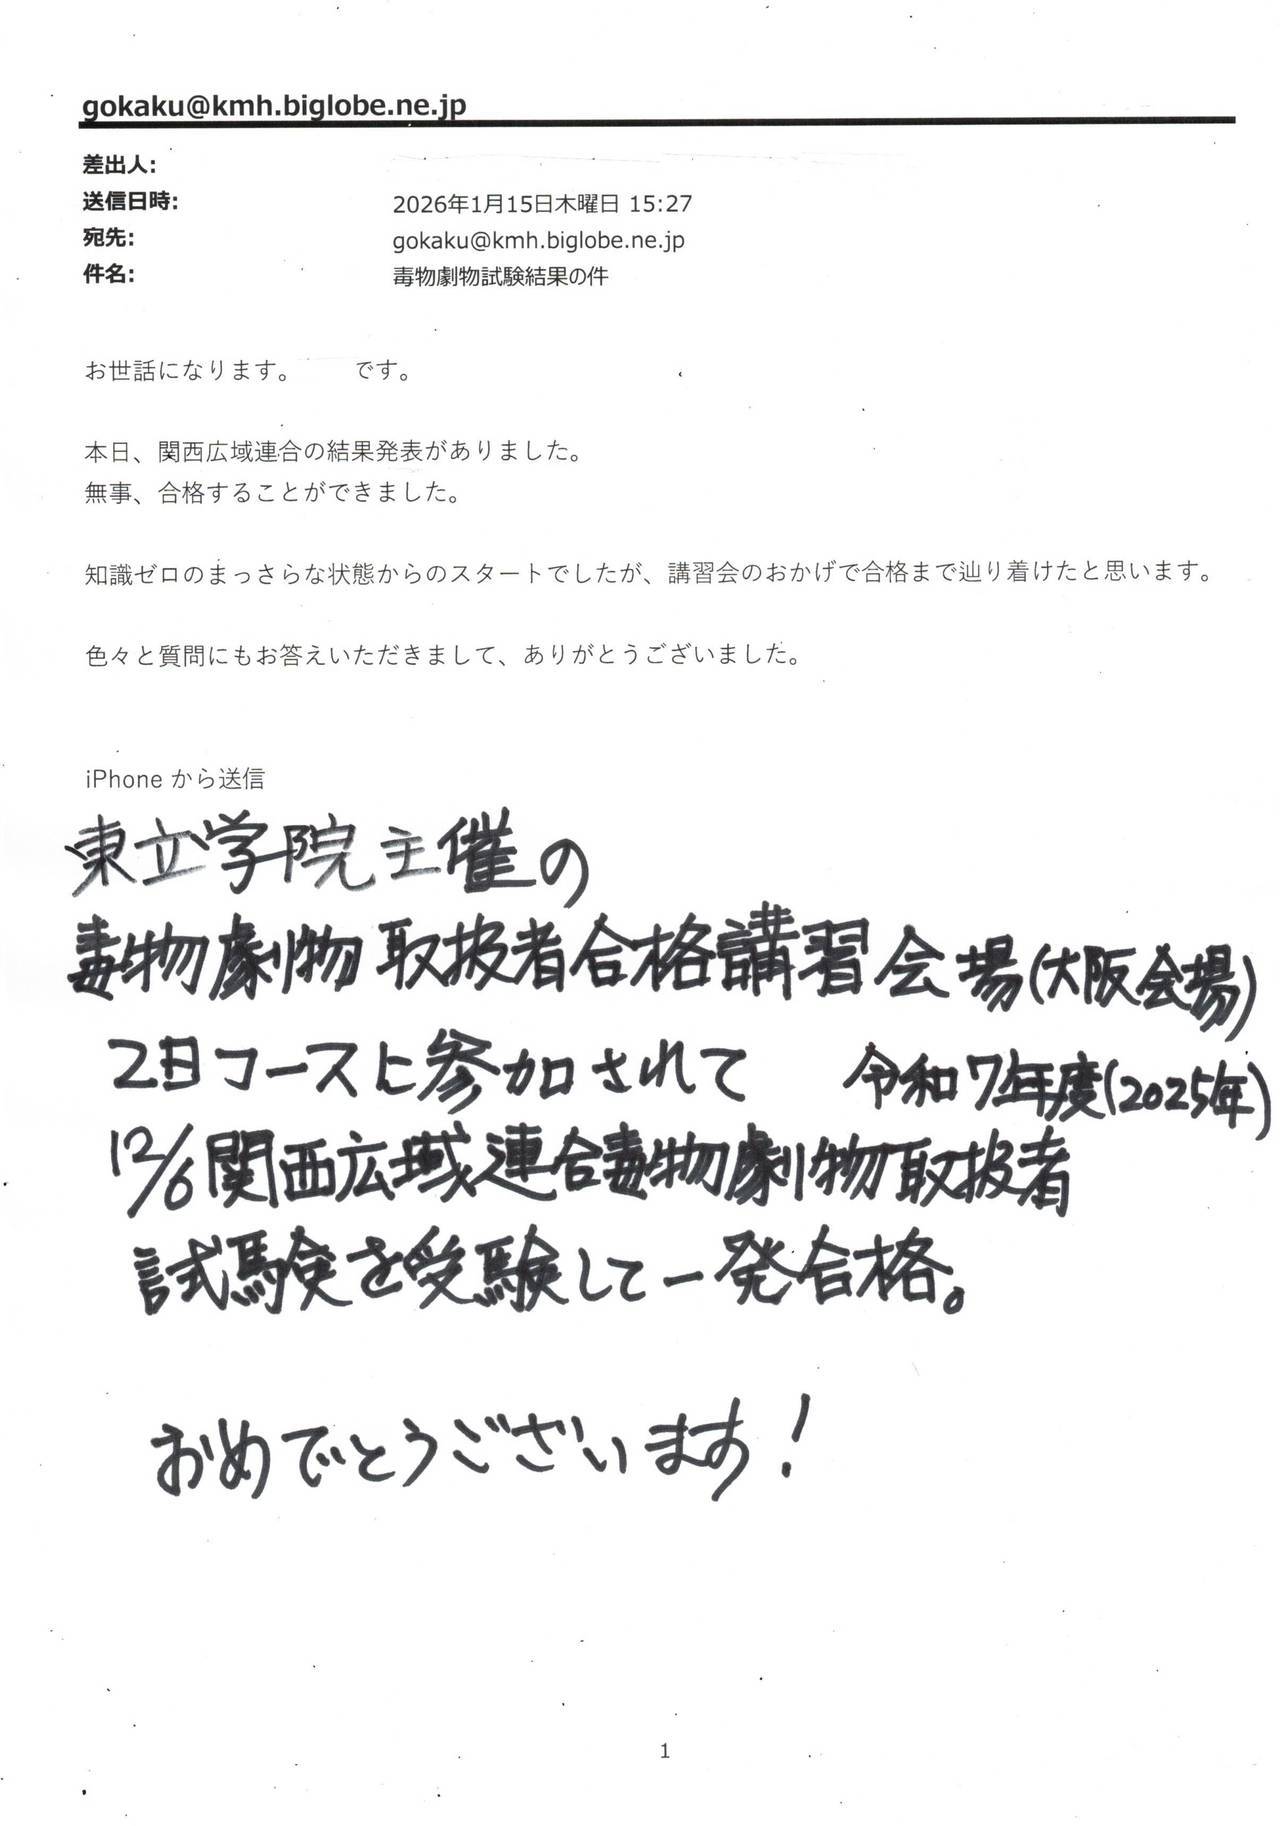 gokaku@kmh.biglobe.ne.jp
差出人:
送信日時: 2026年1月15日木曜日 15:27
宛先: gokaku@kmh.biglobe.ne.jp
件名: 毒物劇物試験結果の件
お世話になります。 です。
本日、関西広域連合の結果発表がありました。
無事、合格することができました。
知識ゼロのまっさらな状態からのスタートでしたが、講習会のおかげで合格まで辿り着けたと思います。
色々と質問にもお答えいただきまして、ありがとうございました。
iPhone から送信
東立学院主催の
毒物劇物取扱者合格講習会場(大阪会場)
2日コースに参加されて 令和7年度(2025年)
12/6関西広域連合毒物劇物取扱者
試験を受験して一発合格。
おめでとうございます!
1